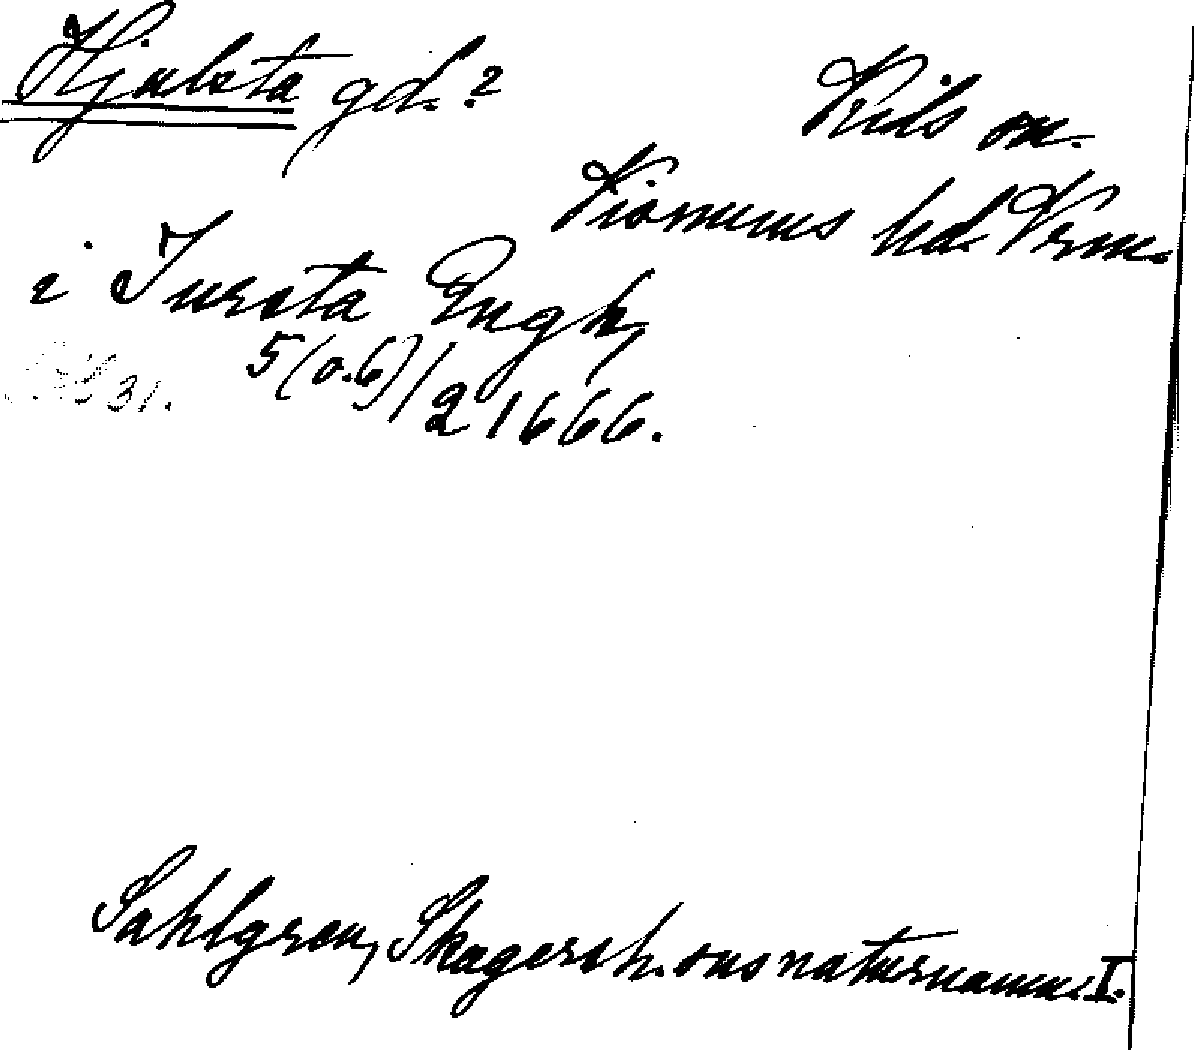 Hjulsta gd.?
Kils sn.
Kisnums hd. Vrm.
i Jursta Engh,
31. 5(o.6)/2 1666.
Sahlgren, Skagersh. sns naturnamn. I.